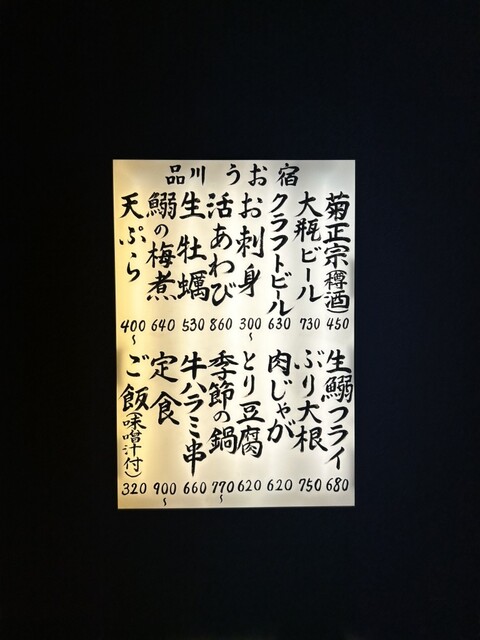 品川 うお宿
菊正宗(樽酒) 450
大瓶ビール 730
クラフトビール 630
お刺身 300〜
活あわび 860
生牡蠣 530
鰯の梅煮 640
天ぷら 400〜
生鰯フライ 680
ぶり大根 750
肉じゃが 620
とり豆腐 620
季節の鍋 770〜
牛ハラミ串 660
定食 900〜
ご飯(味噌汁付) 320